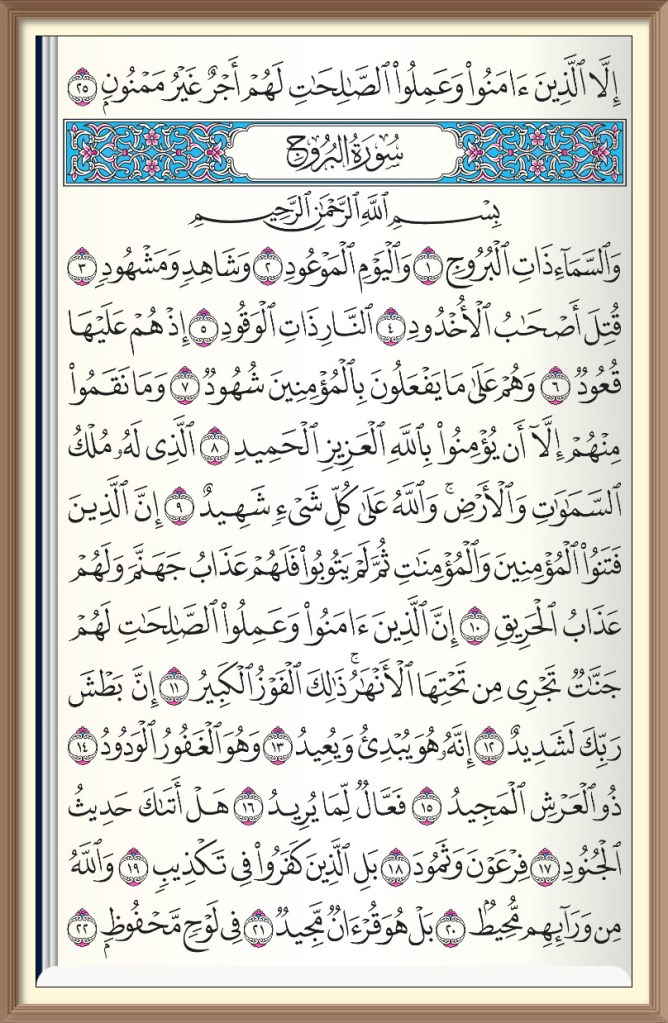 إِلَّا ٱلَّذِينَ ءَامَنُوا۟ وَعَمِلُوا۟ ٱلصَّـٰلِحَـٰتِ لَهُمْ أَجْرٌ غَيْرُ مَمْنُونٍۭ ٢٥
سُورَةُ البُرُوجِ
بِسْمِ ٱللَّهِ ٱلرَّحْمَـٰنِ ٱلرَّحِيمِ
وَٱلسَّمَآءِ ذَاتِ ٱلْبُرُوجِ ١ وَٱلْيَوْمِ ٱلْمَوْعُودِ ٢ وَشَاهِدٍ وَمَشْهُودٍ ٣
قُتِلَ أَصْحَـٰبُ ٱلْأُخْدُودِ ٤ ٱلنَّارِ ذَاتِ ٱلْوَقُودِ ٥ إِذْ هُمْ عَلَيْهَا
قُعُودٌ ٦ وَهُمْ عَلَىٰ مَا يَفْعَلُونَ بِٱلْمُؤْمِنِينَ شُهُودٌ ٧ وَمَا نَقَمُوا۟
مِنْهُمْ إِلَّآ أَن يُؤْمِنُوا۟ بِٱللَّهِ ٱلْعَزِيزِ ٱلْحَمِيدِ ٨ ٱلَّذِى لَهُۥ مُلْكُ
ٱلسَّمَـٰوَٰتِ وَٱلْأَرْضِ ۚ وَٱللَّهُ عَلَىٰ كُلِّ شَىْءٍ شَهِيدٌ ٩ إِنَّ ٱلَّذِينَ
فَتَنُوا۟ ٱلْمُؤْمِنِينَ وَٱلْمُؤْمِنَـٰتِ ثُمَّ لَمْ يَتُوبُوا۟ فَلَهُمْ عَذَابُ جَهَنَّمَ وَلَهُمْ
عَذَابُ ٱلْحَرِيقِ ١٠ إِنَّ ٱلَّذِينَ ءَامَنُوا۟ وَعَمِلُوا۟ ٱلصَّـٰلِحَـٰتِ لَهُمْ
جَنَّـٰتٌ تَجْرِى مِن تَحْتِهَا ٱلْأَنْهَـٰرُ ۚ ذَٰلِكَ ٱلْفَوْزُ ٱلْكَبِيرُ ١١ إِنَّ بَطْشَ
رَبِّكَ لَشَدِيدٌ ١٢ إِنَّهُۥ هُوَ يُبْدِئُ وَيُعِيدُ ١٣ وَهُوَ ٱلْغَفُورُ ٱلْوَدُودُ ١٤
ذُو ٱلْعَرْشِ ٱلْمَجِيدُ ١٥ فَعَّالٌ لِّمَا يُرِيدُ ١٦ هَلْ أَتَىٰكَ حَدِيثُ
ٱلْجُنُودِ ١٧ فِرْعَوْنَ وَثَمُودَ ١٨ بَلِ ٱلَّذِينَ كَفَرُوا۟ فِى تَكْذِيبٍ ١٩ وَٱللَّهُ
مِن وَرَآئِهِم مُّحِيطٌۢ ٢٠ بَلْ هُوَ قُرْءَانٌ مَّجِيدٌ ٢١ فِى لَوْحٍ مَّحْفُوظٍۭ ٢٢